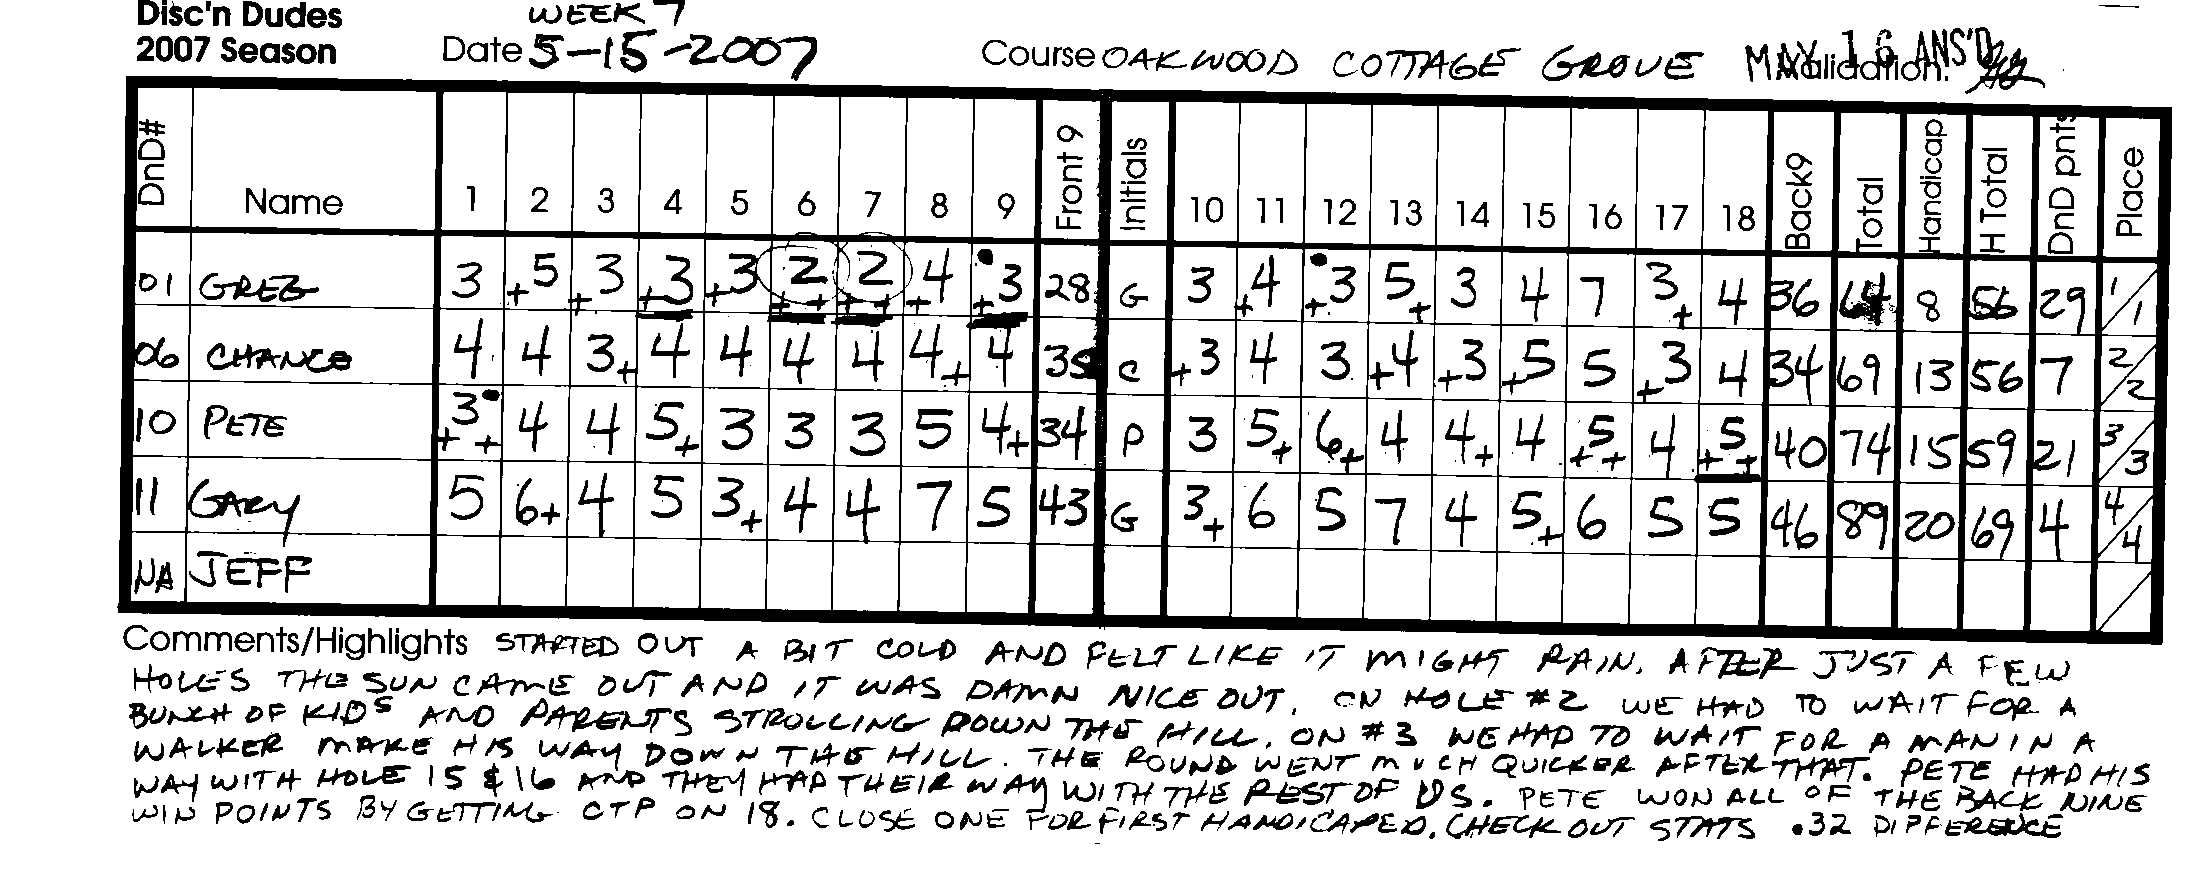 Disc'n Dudes WEEK 7
2007 Season Date 5-15-2007 Course OAKWOOD COTTAGE GROVE Validation: MAY 16 ANS'D
DnD# Name 1 2 3 4 5 6 7 8 9 Front 9 Initials 10 11 12 13 14 15 16 17 18 Back9 Total Handicap H Total DnD pnts Place
01 GREG 3 +5 +3 +3 +3 +2+ +2+ +4 +3 28 G 3 +4 +3 5+ 3 4 7 3+ 4 36 64 8 56 29 1/1
06 CHANCE 4 4 3+ 4 4 4 4 4+ 4 35 C +3 4 3 +4 +3 +5 5 +3 4 34 69 13 56 7 2/2
10 PETE +3+ 4 4 5+ 3 3 3 5 4+ 34 P 3 5+ 6+ 4 4+ 4 +5+ 4 +5+ 40 74 15 59 21 3/3
11 GARY 5 6+ 4 5 3+ 4 4 7 5 43 G 3+ 6 5 7 4 5+ 6 5 5 46 89 20 69 4 4/4
NA JEFF
Comments/Highlights STARTED OUT A BIT COLD AND FELT LIKE IT MIGHT RAIN. AFTER JUST A FEW
HOLES THE SUN CAME OUT AND IT WAS DAMN NICE OUT. ON HOLE #2 WE HAD TO WAIT FOR A
BUNCH OF KIDS AND PARENTS STROLLING DOWN THE HILL. ON #3 WE HAD TO WAIT FOR A MAN IN A
WALKER MAKE HIS WAY DOWN THE HILL. THE ROUND WENT MUCH QUICKER AFTER THAT. PETE HAD HIS
WAY WITH HOLE 15 & 16 AND THEY HAD THEIR WAY WITH THE REST OF US. PETE WON ALL OF THE BACK NINE
WIN POINTS BY GETTING CTP ON 18. CLOSE ONE FOR FIRST HANDICAPED. CHECK OUT STATS .32 DIFFERENCE